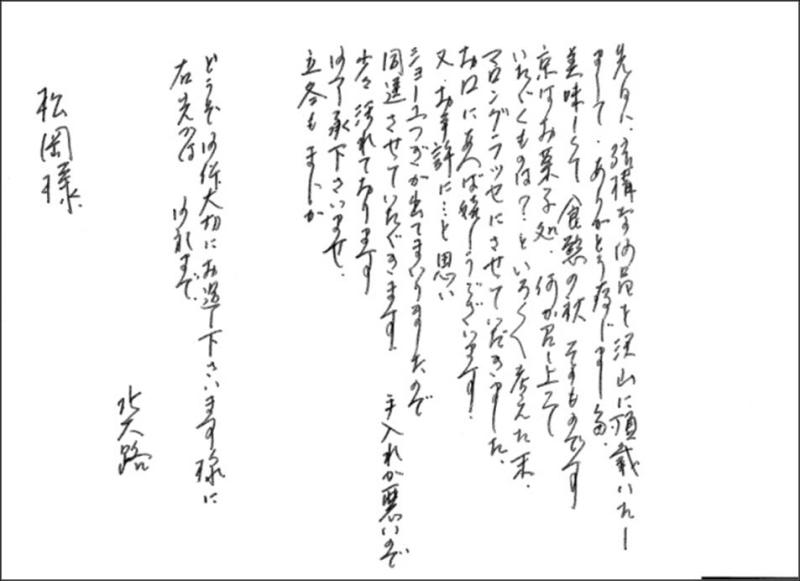 先日は、結構なお品を沢山に頂戴いたし
まして、ありがとう存じます。
美味しくて 食慾の秋 そのものです
京はお菓子処、何か召し上って
いただくものは?といろく考えた末、
マロングラッセにさせていただきました。
お口にあえば嬉しうございます。
又、お手許に…と思い
ショールつぎが出てまいりましたので
同送させていただきます。 手入れが悪いので
少々汚れております
御了承下さいませ、
立冬も まじか
どうぞ御体大切にお過し下さいます様に
右 先づは 御礼まで、
北大路
松岡様